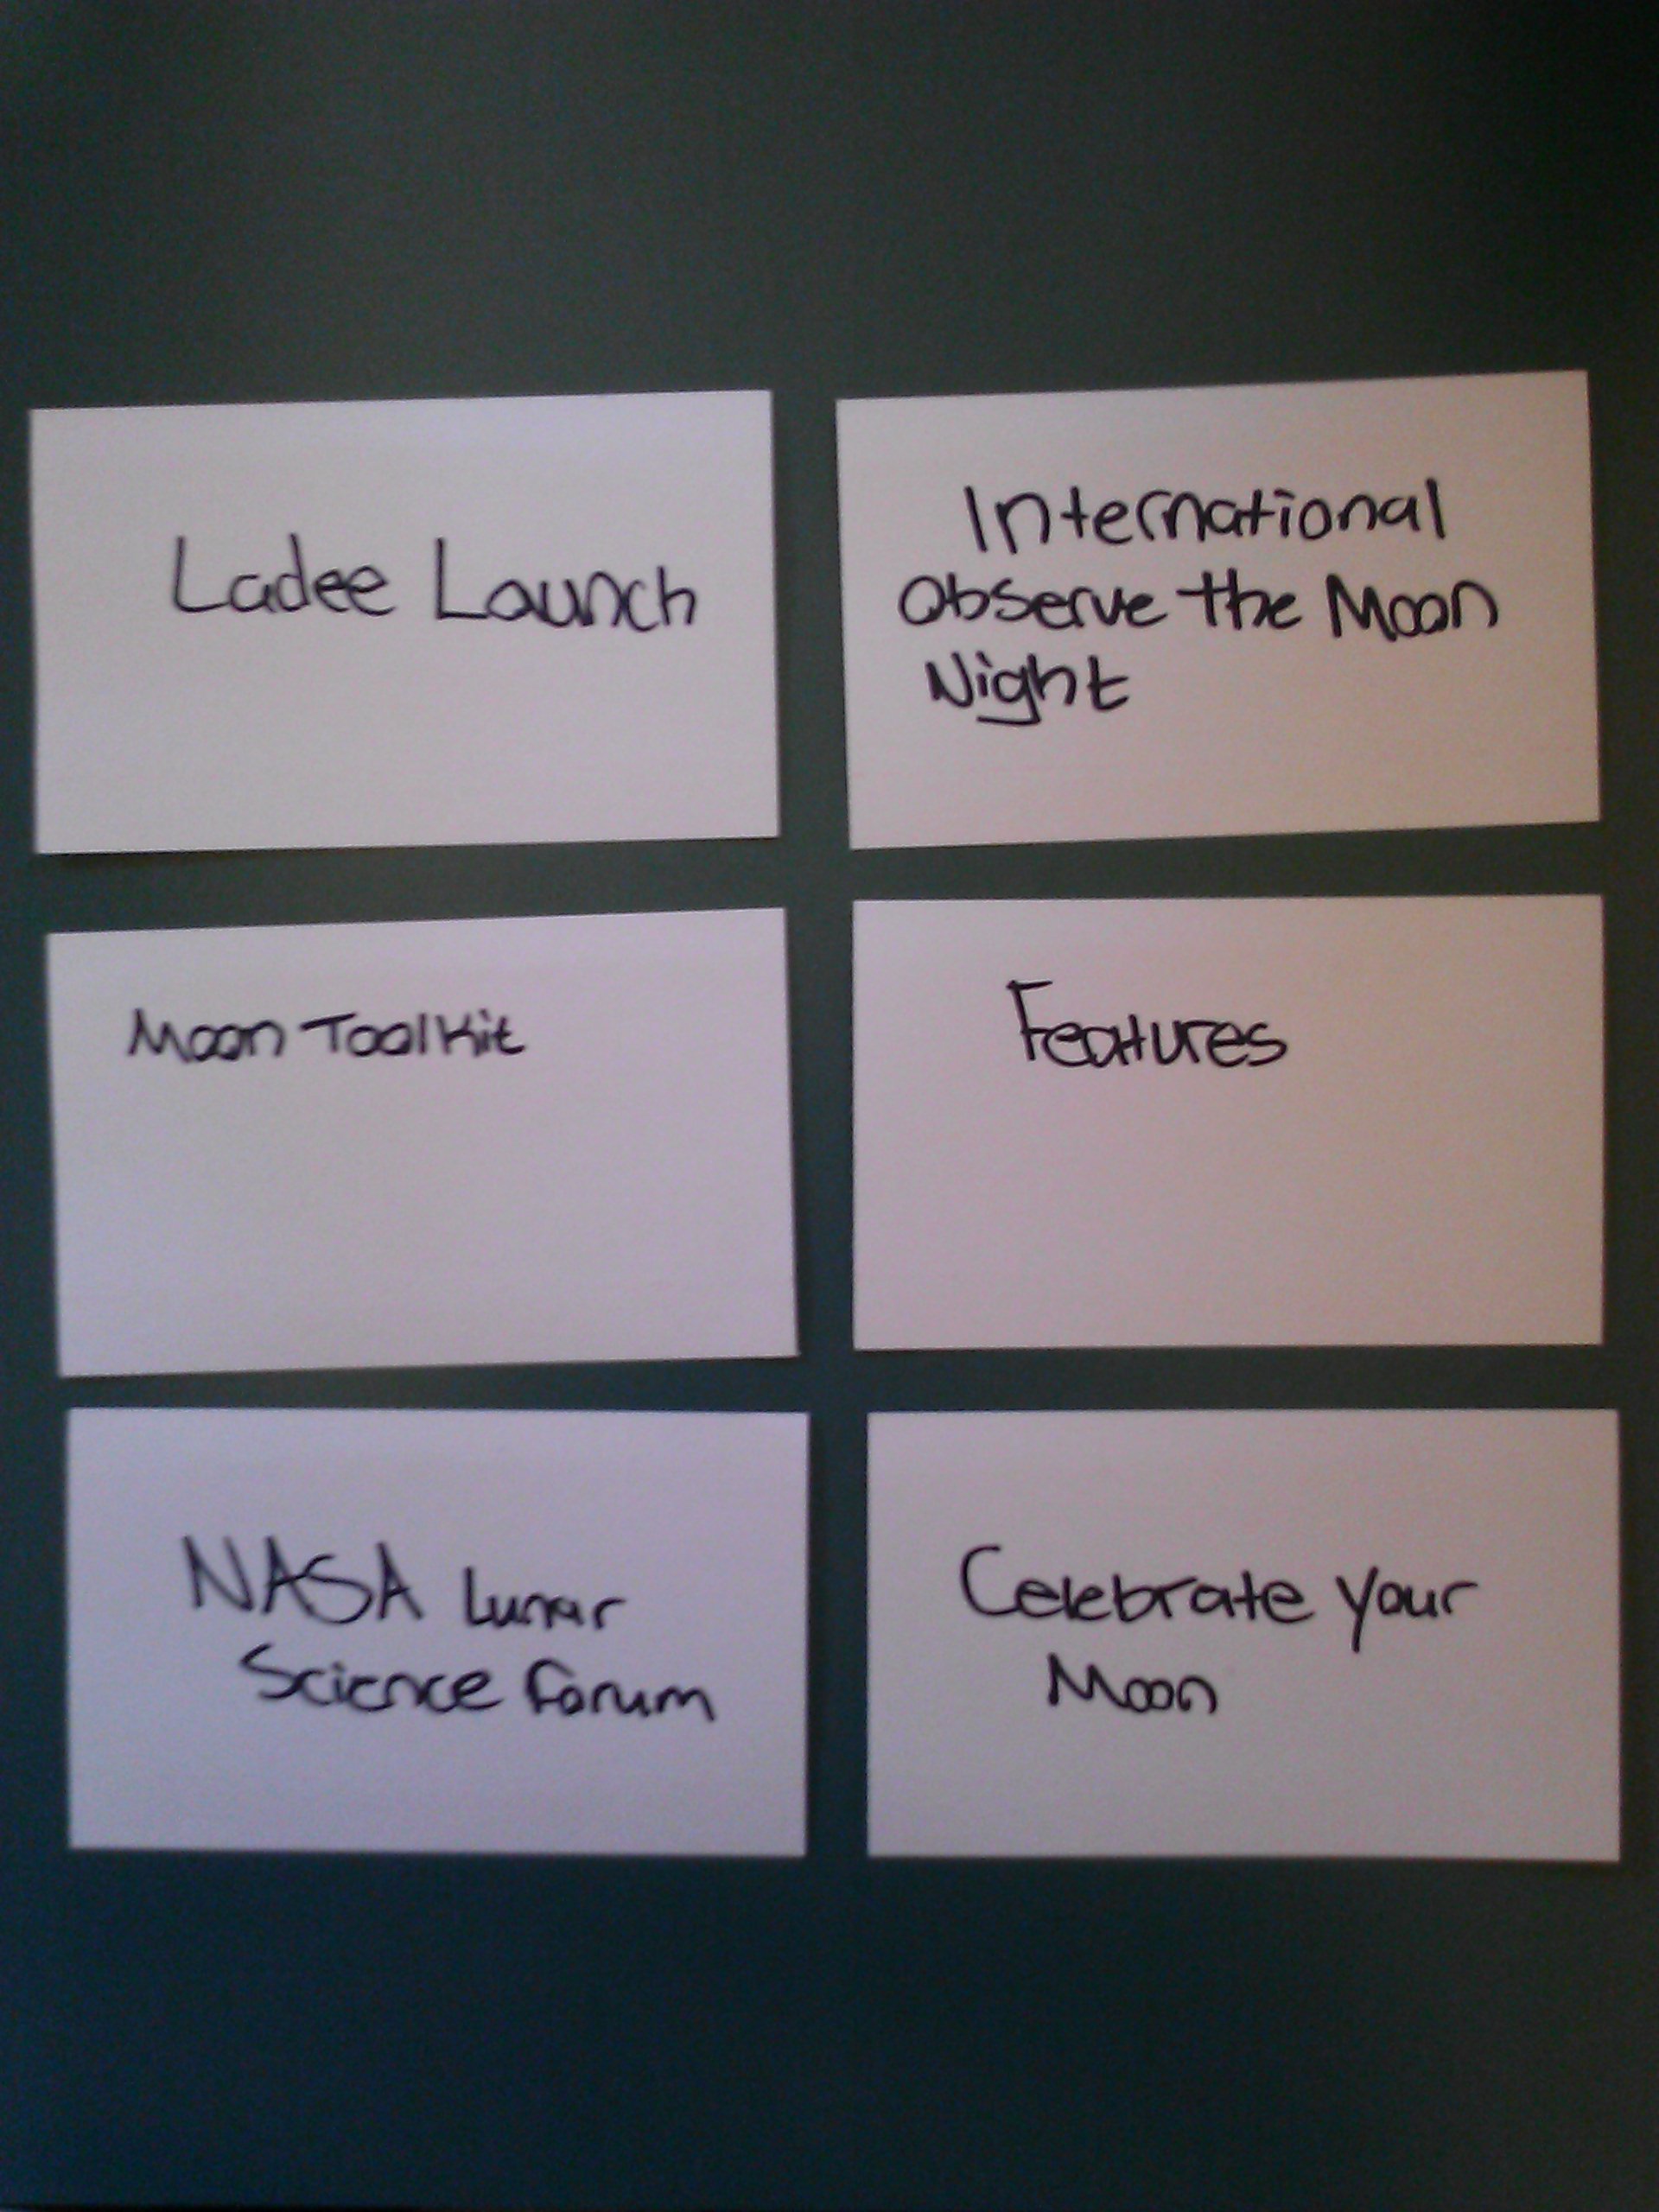 Ladee Launch
International
Observe the Moon
Night
Moon Toolkit
Features
NASA Lunar
Science Forum
Celebrate your
Moon